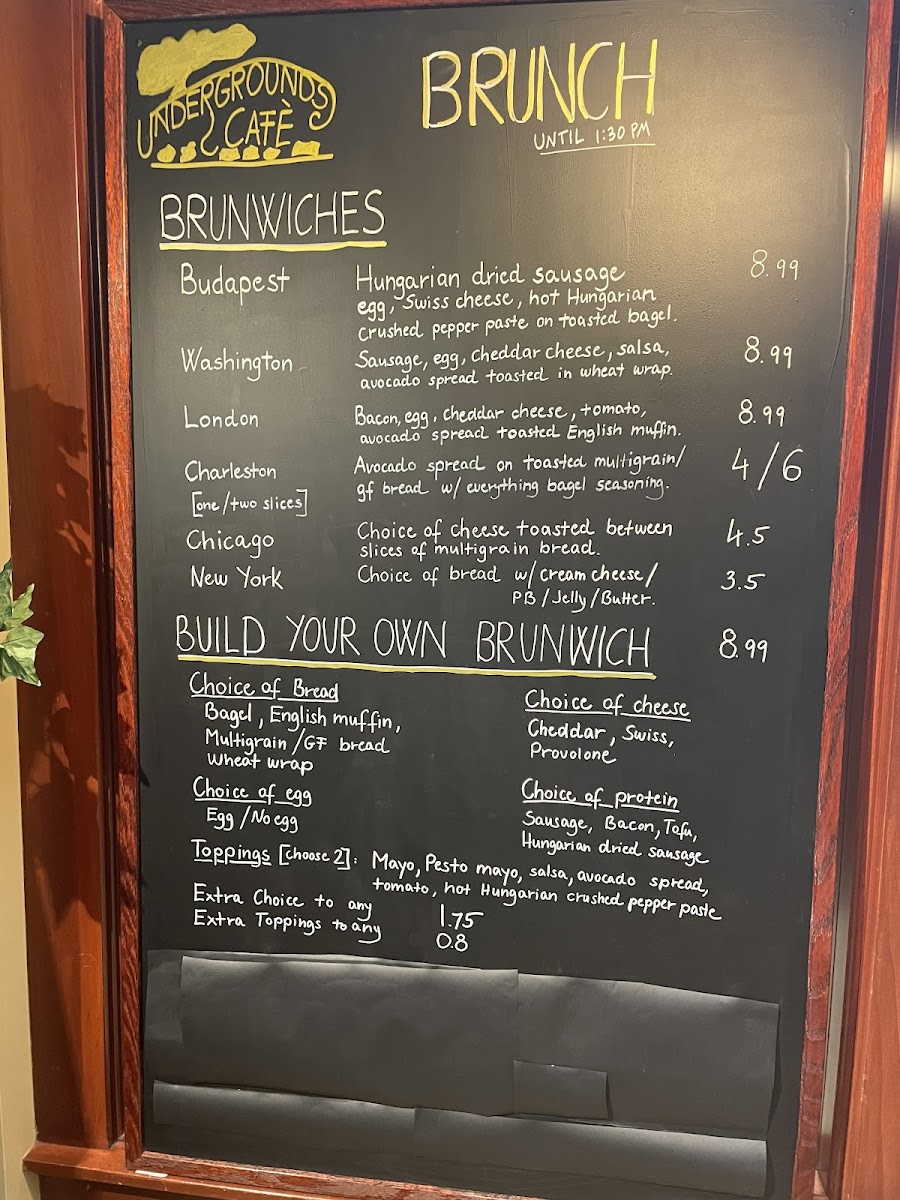 UNDERGROUNDS
CAFÈ
BRUNCH
UNTIL 1:30 PM
BRUNWICHES
Budapest Hungarian dried sausage 8.99
egg, Swiss cheese, hot Hungarian
crushed pepper paste on toasted bagel.
Washington Sausage, egg, cheddar cheese, salsa, 8.99
avocado spread toasted in wheat wrap.
London Bacon, egg, cheddar cheese, tomato, 8.99
avocado spread toasted English muffin.
Charleston Avocado spread on toasted multigrain/ 4/6
[one/two slices] gf bread w/ everything bagel seasoning.
Chicago Choice of cheese toasted between 4.5
slices of multigrain bread.
New York Choice of bread w/ cream cheese/ 3.5
PB/Jelly/Butter.
BUILD YOUR OWN BRUNWICH 8.99
Choice of Bread
Bagel, English muffin,
Multigrain/GF bread
wheat wrap
Choice of cheese
Cheddar, Swiss,
Provolone
Choice of egg
Egg/No egg
Choice of protein
Sausage, Bacon, Tofu,
Hungarian dried sausage
Toppings [choose 2]: Mayo, Pesto mayo, salsa, avocado spread,
tomato, hot Hungarian crushed pepper paste
Extra Choice to any 1.75
Extra Toppings to any 0.8